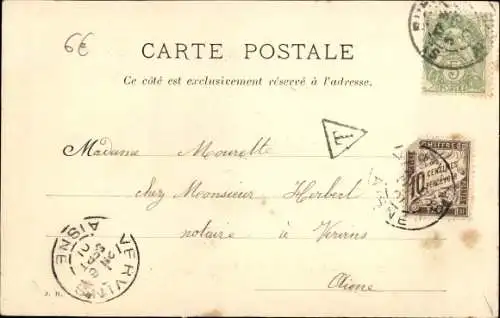 6€
CARTE POSTALE
Ce côté est exclusivement réservé à l'adresse.
T
CHIFFRE
10
CENTIMES
Madame Mourette
chez Monsieur Herbert
notaire à Vervins
Aisne
VERVINS
AISNE